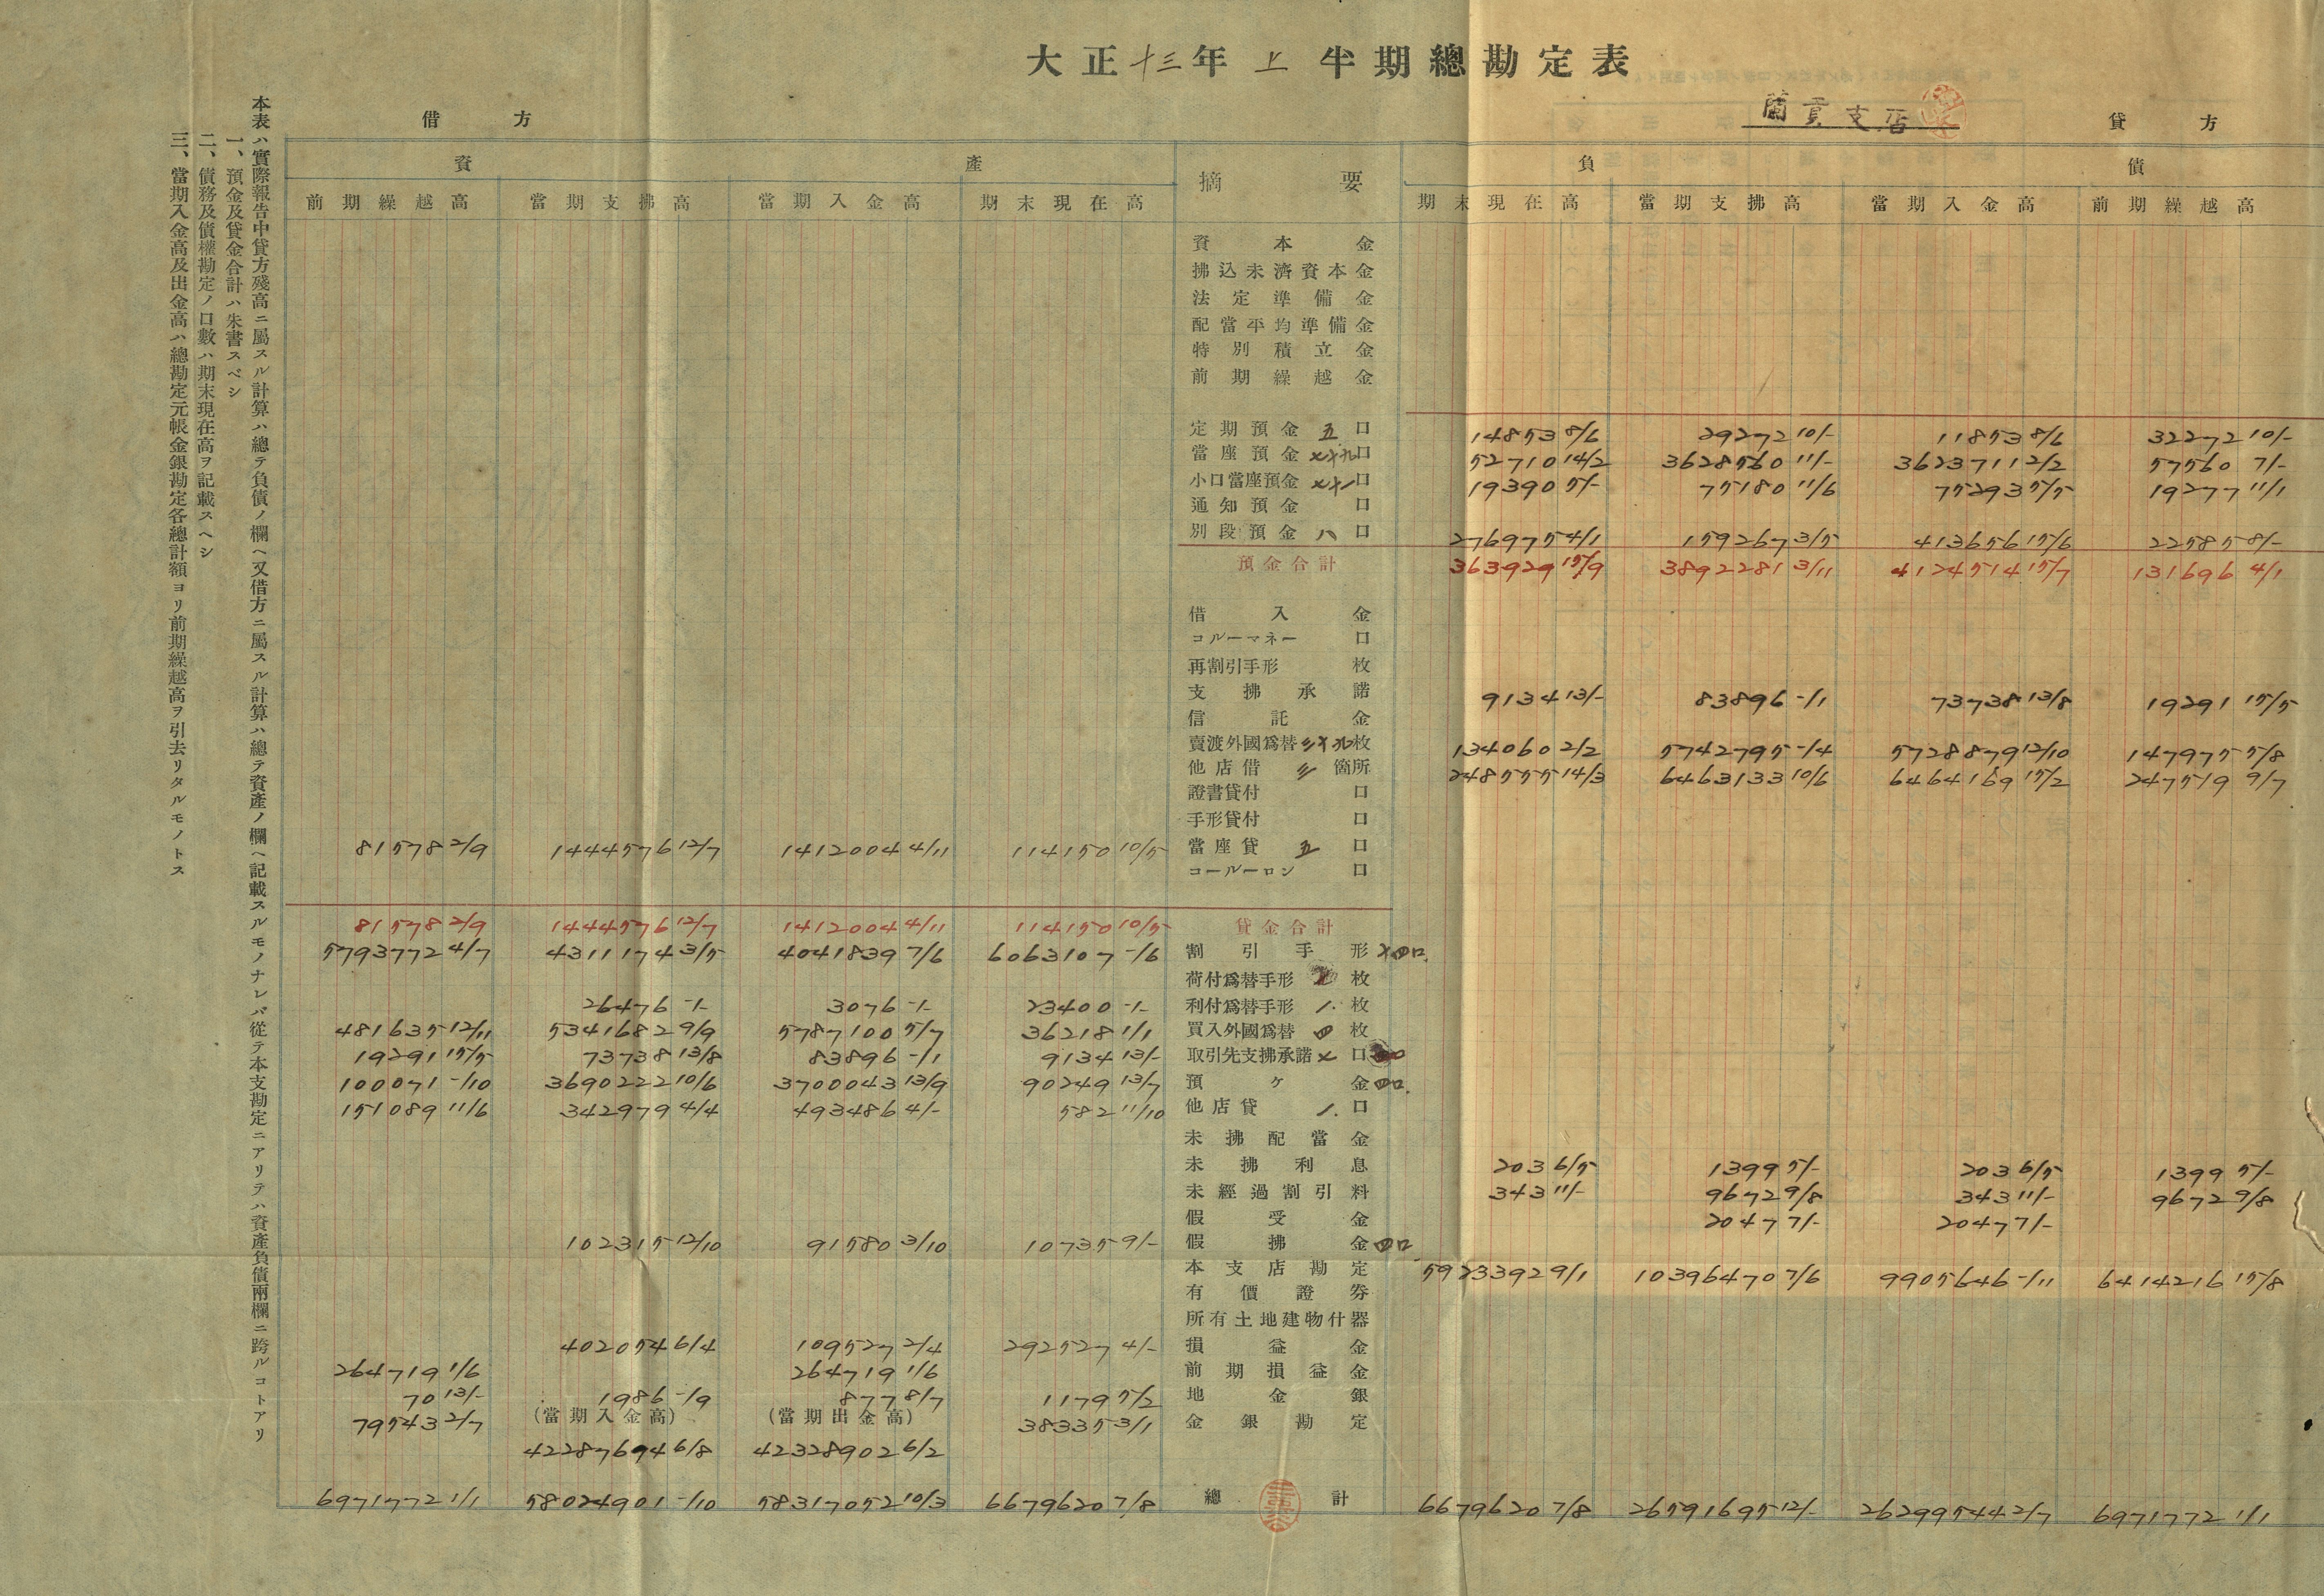 大正十三年上半期總勘定表
蘭貢支店
借方 貸方
資產 摘要 負債
前期繰越高 當期支拂高 當期入金高 期末現在高 期末現在高 當期支拂高 當期入金高 前期繰越高
資本金
拂込未濟資本金
法定準備金
配當平均準備金
特別積立金
前期繰越金
定期預金 五口 14853 8/6 29272 10/- 11853 8/6 32272 10/-
當座預金 七十九口 52710 14/2 3628560 11/- 3623711 2/2 57560 7/-
小口當座預金 七十一口 19390 5/- 75180 11/6 75293 5/5 19277 11/1
通知預金 口
別段預金 八口 276975 4/1 159267 3/5 413656 15/6 22585 8/-
預金合計 363929 15/9 3892281 3/11 4124514 15/7 131696 4/1
借入金
コルーマネー 口
再割引手形 枚
支拂承諾 9134 13/- 83896 -/1 73738 13/8 19291 15/5
信託金
賣渡外國爲替 三十九枚 134060 2/2 5742795 -/4 5728879 12/10 147975 5/8
他店借 三箇所 248555 14/3 6463133 10/6 6464169 15/2 247519 9/7
證書貸付 口
手形貸付 口
81578 2/9 1444576 12/7 1412004 4/11 114150 10/5 當座貸 五口
コールーロン 口
81578 2/9 1444576 12/7 1412004 4/11 114150 10/5 貸金合計
5793772 4/7 4311174 3/5 4041839 7/6 6063107 -/6 割引手形 口
荷付爲替手形 枚
26476 -/- 3076 -/- 23400 -/- 利付爲替手形 1. 枚
481635 12/11 5341682 9/9 5787100 5/7 36218 1/1 買入外國爲替 四枚
19291 15/5 73738 13/8 83896 -/1 9134 13/- 取引先支拂承諾 七口
100071 -/10 3690222 10/6 3700043 13/9 90249 13/7 預ケ金 四口.
151089 11/6 342979 4/4 493486 4/- 582 11/10 他店貸 1. 口
未拂配當金
未拂利息 203 6/5 1399 5/- 203 6/5 1399 5/-
未經過割引料 343 11/- 9672 9/8 343 11/- 9672 9/8
假受金 2047 7/- 2047 7/-
102315 12/10 91580 3/10 10735 9/- 假拂金 四口
本支店勘定 5923392 9/1 10396470 7/6 9905646 -/11 6414216 15/8
有價證券
所有土地建物什器
402054 6/4 109527 2/4 292527 4/- 損益金
264719 1/6 264719 1/6 前期損益金
70 13/- 1986 -/9 877 8/7 1179 5/2 地金銀
79543 2/7 (當期入金高) (當期出金高) 38335 3/1 金銀勘定
42287694 6/8 42328902 6/2
6971772 1/1 58024901 -/10 58317052 10/3 6679620 7/8 總計 6679620 7/8 26591695 12/- 26299544 2/7 6971772 1/1
本表ハ實際報告中貸方殘高ニ屬スル計算ハ總テ負債ノ欄ヘ又借方ニ屬スル計算ハ總テ資產ノ欄ヘ記載スルモノナレバ從テ本支勘定ニアリテハ資產負債兩欄ニ跨ルコトアリ
一、預金及貸金合計ハ朱書スベシ
二、債務及債權勘定ノ口數ハ期末現在高ヲ記載スヘシ
三、當期入金高及出金高ハ總勘定元帳金銀勘定各總計額ヨリ前期繰越高ヲ引去リタルモノトス